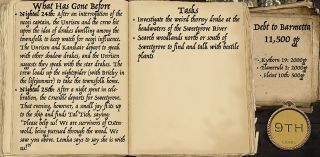 What Has Gone Before
• Nightal 24th: After an interrogation of the
nogi captain, the Unrisen and the crew hit
upon the idea of drakes dwelling among the
townsfolk to keep watch for nogi influence.
The Unrisen and Kanikatr depart to speak
with other shadow drakes, and the Unrisen
suggests they speak with the star drakes. The
crew loads up the nightspider (with Brickley in
the lifejammer) to take the townsfolk home.
• Nightal 25th: After a night spent in cele-
bration, the Crucible departs for Sweetgrove.
That evening, however, a small fey flits up
to the ship and finds Tal'Tish, saying:
"Please help! We are survivors of Osten-
wold, being pursued through the weed. We
saw you above. Lemha says to say she is with
us!"
Tasks
• Investigate the weird thorny drake at the
headwaters of the Sweetgrove River
• Search woodlands north or south of
Sweetgrove to find and talk with hostile
plants
Debt to Barnetta
11,500 gp
• Kythorn 19: 2000gp
• Flamerule 2: 1000gp
• Eleint 10th: 500gp
9TH
LEVEL